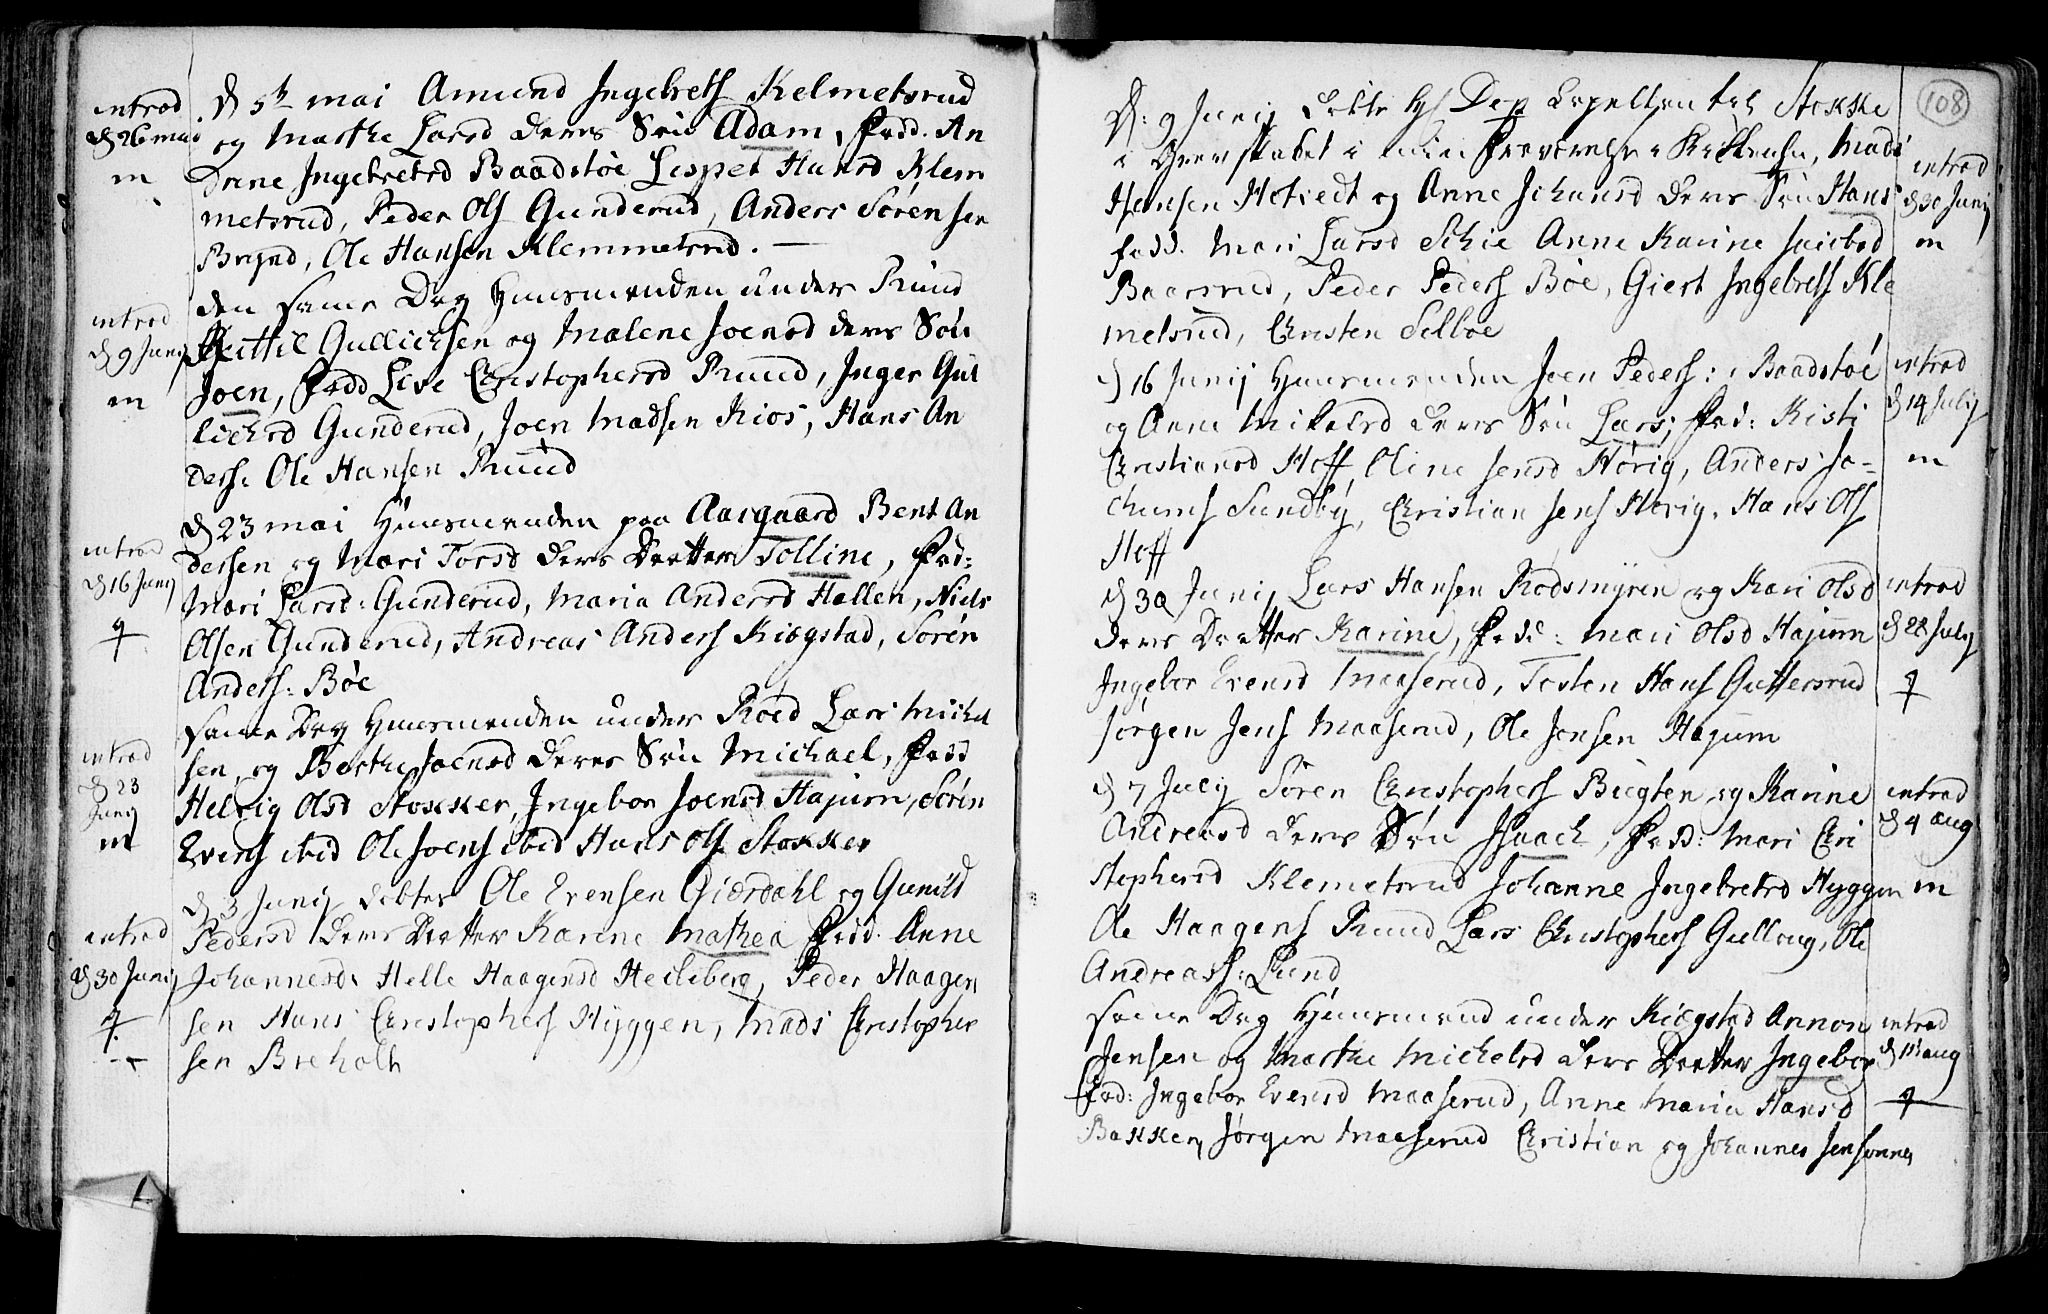 introd
d 26 mai
m
d 5te mai Amund Ingebrets Kelmetsrud
og Marthe Larsd deres Søn Adam, Fadd. An
Drine Ingebretsd Baadstøe Lispet Hansd Klem
metsrud, Peder Ols Gunderud, Anders Sørensen
Brynd, Ole Hansen Klemmetsrud.
introd
d 9 Junij
m
den same Dag Huusmanden under Ruud
Kittil Gullichsen og Malene Joensd deres Søn
Joen, Fadd Live Christophersd Ruud, Inger Gul
lichsd Gunderud, Joen Madsen Kios, Hans An
ders: Ole Hansen Ruud
introd
d 16 Junij
d 23 mai Huusmanden paa Aasgaard Bent An
dersen og Mari Torsd deres Daatter Tolline, Fad:
Mari Larsd: Gunderud, Maria Andersd Hellen, Niels
Olsen Gunderud, Andreas Anders Kiøgstad, Søren
Anders: Bøe
introd
d 23
Junij
m
same Dag Huusmanden under Roed Lars Michel
sen, og Berthe Joensd deres Søn Michael, Fadd
Helvig Olsd Stokker, Ingebor Joensd Hajum, Søren
Evens ibid Ole Joens ibid Hans Ols Stokker
introd
d 30 Junij
d 3 Junij døbtes Ole Evensen Giærdahl og Gunild
Pedersd deres Daatter Karine Mathea Fadd. Anne
Johannesd: Helle Haagensd Heileberg, Peder Haagen
sen Hans Christophers Hyggen, Mads Christopher
sen Breholt
108
D: 9 Junij døbte Hr Dep Capellan til Stokke
i Grevskabet i min Fraværelse i Kirken, Mads
Hansen Hotvedt og Anne Johansd deres Søn Hans
Fadd. Mari Larsd Schie Anne Karine Jacobsd
Baarsrud, Peder Peders Bøe, Giert Ingebrets Kle
metsrud, Christen Selboe
introd
d 30 Junij
m
d 16 Junij Huusmanden Joen Peders: i Baadstøe
og Anne Mikelsd deres Søn Lars; Fad: Kisti
Christiansd Hoff, Oline Jensd Hørig, Anders Jo-
chums Sundby, Christian Jens Hørig, Hans Ols
Hoff
introd
d 14 Julij
m
d 30 Junij Lars Hansen Rødsmyren og Kari Olsd
deres Daatter Karine, Fadd: Mari Olsd Hajum
Ingebor Evensd Maaserud, Tosten Hans Guttersrud
Jørgen Jens Maaserud, Ole Jensen Hajum
introd
d 28 Julij
d 7 Julij Søren Christophers Bugten og Karine
Andreasd deres Søn Isaach, Fadd: Mari Chri
stophersd Klemetsrud Johanne Ingebretsd Hyggen
Ole Haagens Ruud Lars Christophers Gullaug, Ole
Andreass: Lund
introd
d 4 aug
m
same Dag Huusmand under Kiøgstad Annon
Jensen og Marthe Michelsd deres Daatter Ingebor
Fad: Ingebor Evensd Maaserud, Anne Maria Hansd
Bakken, Jørgen Maaserud Christian og Johannes Jensønner
introd
d 11 aug